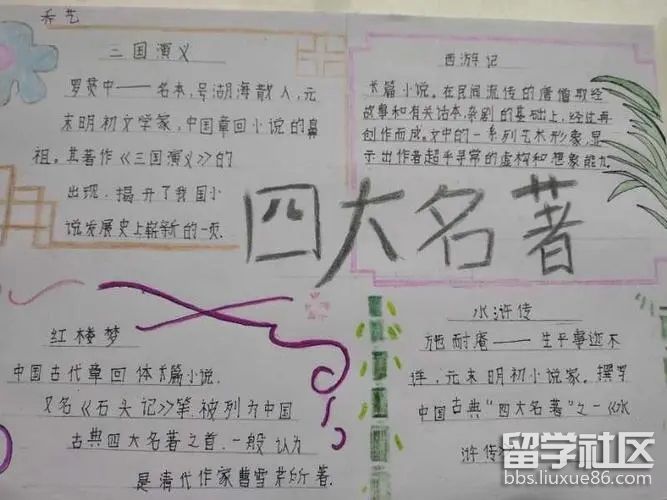 乔艺
三国演义
罗贯中——名本，号湖海散人，元
末明初文学家，中国章回小说的鼻
祖。其著作《三国演义》的
出现，揭开了我国小
说发展史上崭新的一页.
西游记
长篇小说。在民间流传的唐僧取经
故事和有关话本，杂剧的基础上，经过再
创作而成。文中的一系列艺术形象，显
示出作者超乎寻常的虚构和想象能力
四大名著
红楼梦
中国古代章回体长篇小说.
又名《石头记》等，被列为中国
古典四大名著之首，一般认为
是清代作家曹雪芹所著.
水浒传
施耐庵——生平事迹不
详，元末明初小说家。撰写
中国古典"四大名著"之一《水
浒传》
留学社区
bbs.liuxue86.com